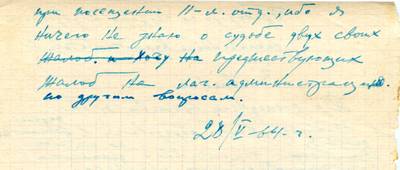 при посещении II-л. отд., ибо я
ничего не знаю о судьбе двух своих
жалоб. и хочу на предшествующих
жалоб на лаг. администрацию.
по другим вопросам.
28/V-64 г.